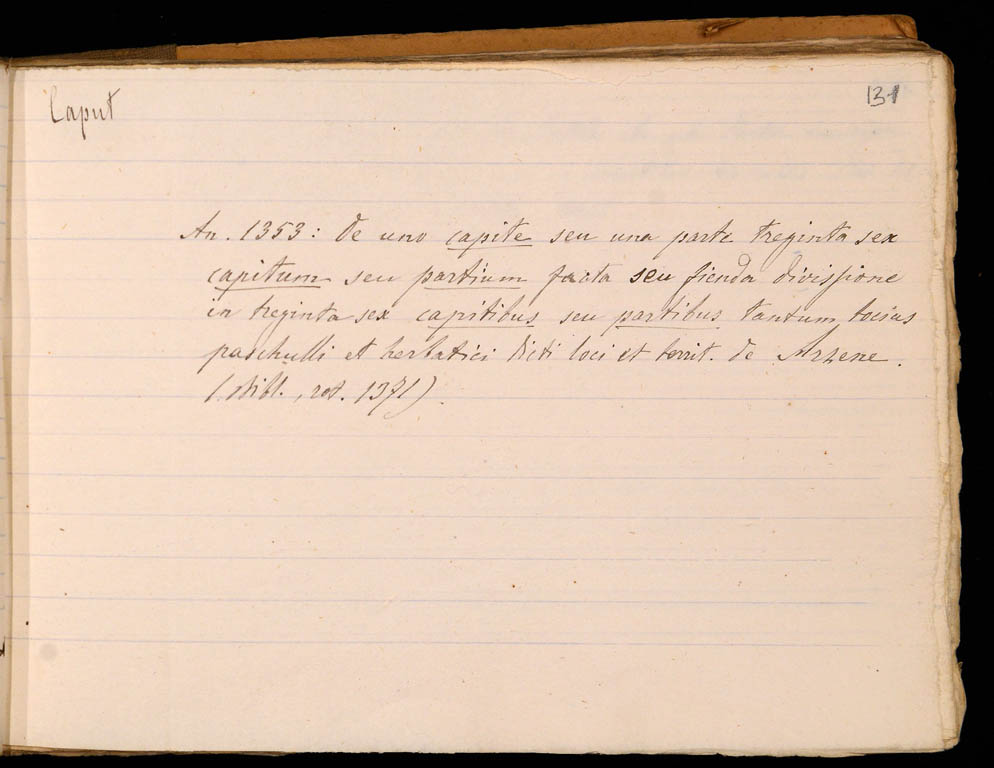 Caput
131
An. 1353: De uno capite seu una parte treginta sex
capitum seu partium facta seu fienda divissione
in treginta sex capitibus seu partibus tantum tocius
paschulli et herbatici dicti loci et territ. de Arzene.
(Bibl., rot. 1371)